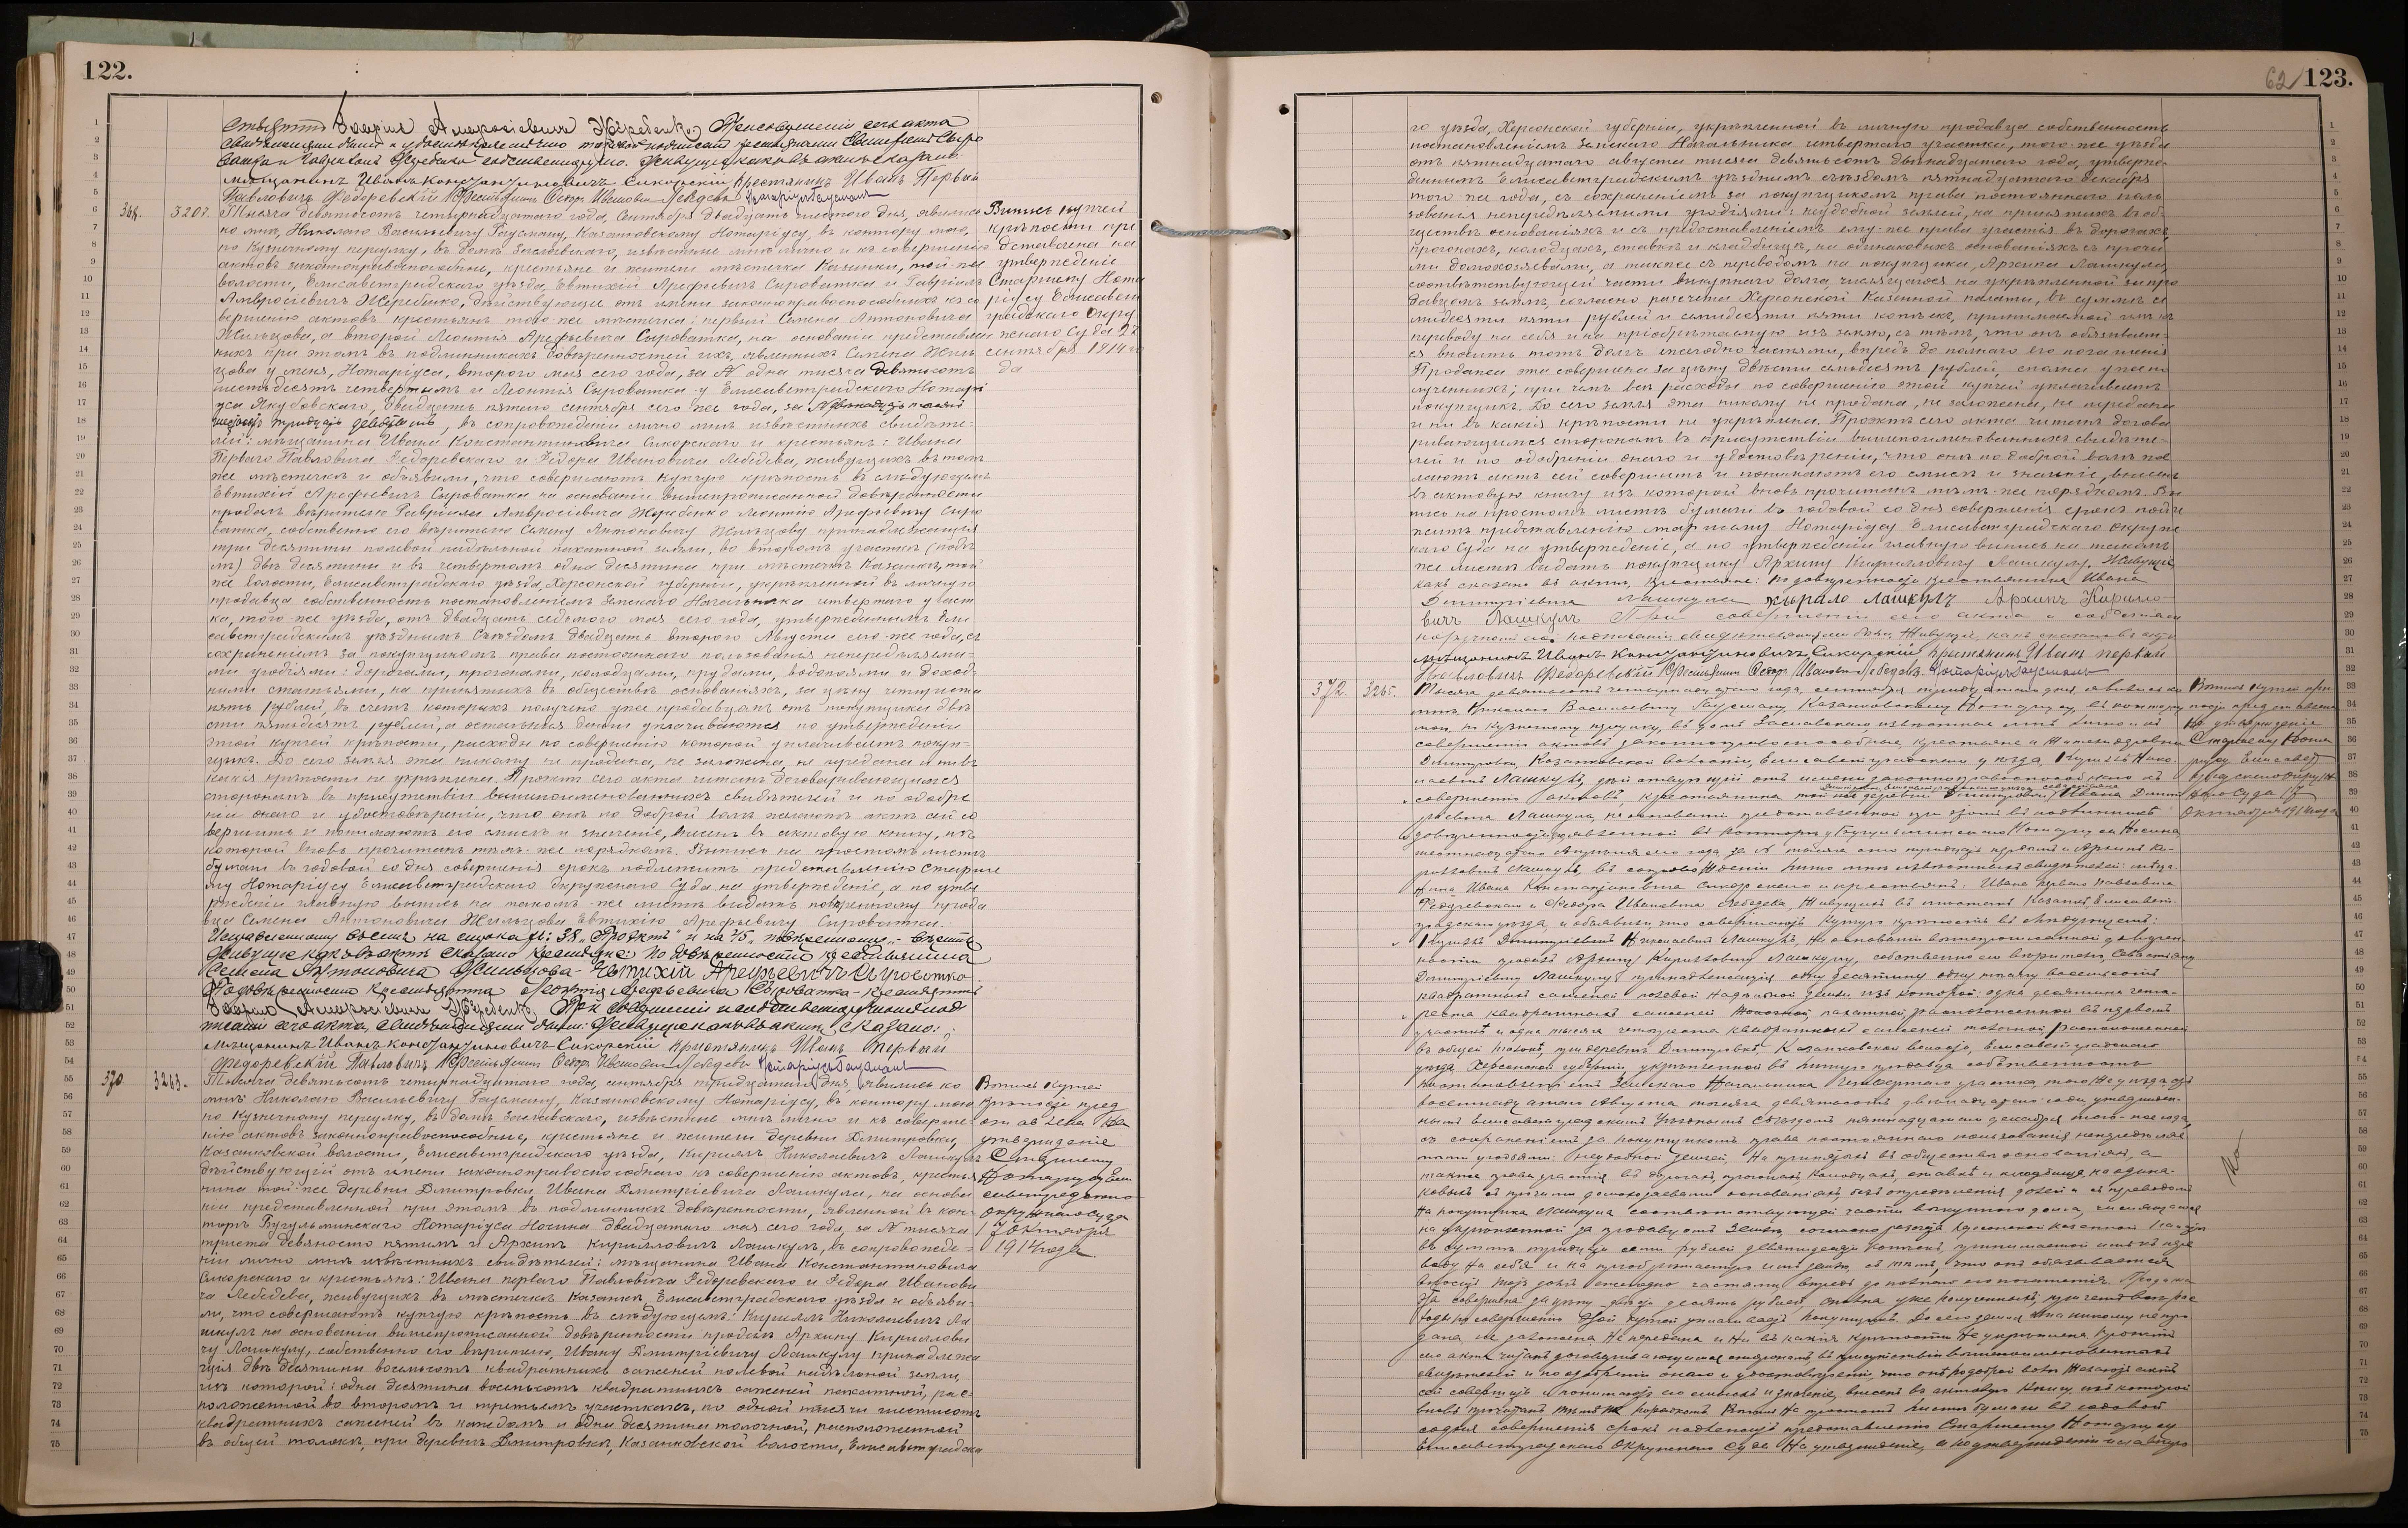 122.
Гавріилъ Амвросіевичъ Жеребенко При совершеніи сего акта
мѣщанинъ Иванъ Константиновичъ Сикорскій Крестьянинъ Иванъ Первый
Павловичъ Федоревскій Крестьянинъ Федоръ Ивановичъ Лебедевъ Нотаріусъ Гаусманъ
3207. Тысяча девятьсотъ четырнадцатаго года, Сентября двадцать шестого дня, явились
ко мнѣ, Николаю Васильевичу Гаусману, Казанковскому Нотаріусу, въ контору мою,
по Кузнечному переулку, въ домѣ Заславскаго, извѣстные мнѣ лично и къ совершенію
актовъ законоправоспособные, крестьяне и жители мѣстечка Казанки, той-же
волости, Елисаветградскаго уѣзда, Евтихій Арефьевичъ Сыроватка и Гавріилъ
Амвросіевичъ Жеребенко, дѣйствующіе отъ имени законоправоспособныхъ къ со
вершенію актовъ крестьянъ того-же мѣстечка: первый Семена Антоновича
Жильцова, а второй Леонтія Арефьевича Сыроватка, на основаніи представлен
ныхъ при этомъ въ подлинникахъ довѣренностей ихъ, явленныхъ Семена Жиль
цова у меня, Нотаріуса, второго мая сего года, за № одна тысяча девятьсотъ
шестьдесятъ четвертымъ и Леонтія Сыроватка у Елисаветградскаго Нотарі
уса Якубовскаго, двадцать пятаго сентября сего-же года, за №
тридцать девятымъ, въ сопровожденіи лично мнѣ извѣстныхъ свидѣте-
лей: мѣщанина Ивана Константиновича Сикорскаго и крестьянъ: Ивана
Перваго Павловича Федоревскаго и Федора Ивановича Лебедева, живущихъ въ томъ
же мѣстечкѣ и объявили, что совершаютъ купчую крѣпость въ слѣдующемъ:
Евтихій Арефьевичъ Сыроватка на основаніи вышепрописанной довѣренности
продалъ вѣрителю Гавріила Амвросіевича Жеребенко Леонтію Арефьевичу Сыро
ватка, собственно его вѣрителю Семену Антоновичу Жильцову принадлежащія
три десятины полевой надѣльной пахатной земли, во второмъ участкѣ (полѣ
мъ) двѣ десятины и въ четвертомъ одна десятина при мѣстечкѣ Казанкѣ, той
же волости, Елисаветградскаго уѣзда, Херсонской губерніи, укрѣпленной въ личную
продавца собственность постановленіемъ Земскаго Начальника четвертаго участ
ка, того-же уѣзда, отъ двадцать седьмого мая сего года, утвержденнымъ Ели
саветградскимъ уѣзднымъ Съѣздомъ двадцать второго Августа сего-же года, съ
сохраненіемъ за покупщикомъ права постояннаго пользованія непередѣляемы-
ми угодіями: дорогами, прогонами, колодцами, прудами, водопоями и доход-
ными статьями, на принятыхъ въ обществѣ основаніяхъ, за цѣну четыреста
пять рублей, въ счетъ которыхъ получено уже продавцомъ отъ покупщика двѣ
сти пятьдесятъ рублей, а остальныя деньги уплачиваются по утвержденіи
этой купчей крѣпости, расходы по совершенію которой уплачиваетъ покуп-
щикъ. До сего земля эта никому не продана, не заложена, не передана и ни въ
какія крѣпости не укрѣплена. Проектъ сего акта читанъ договаривающимся
сторонамъ въ присутствіи вышепоименованныхъ свидѣтелей и по одобре
ніи онаго и удостовѣреніи, что они по доброй волѣ желаютъ актъ сей со
вершить и понимаютъ его смыслъ и значеніе, внесенъ въ актовую книгу, изъ
которой вновь прочитанъ тѣмъ-же порядкомъ. Выпись на простомъ листѣ
бумаги въ годовой со дня совершенія срокъ подлежитъ представленію Старше
му Нотаріусу Елисаветградскаго Окружнаго Суда на утвержденіе, а по утве
ржденіи главную выпись на такомъ-же листѣ выдать повѣренному прода
вца Семена Антоновича Жильцова Евтихію Арефьевичу Сыроватка.
Живущіе какъ въ актѣ сказано крестьяне: По довѣренности крестьянина
Семена Антоновича Жильцова - Евтихій Арефьевичъ Сыроватка
По довѣренности крестьянина Леонтія Арефьевича Сыроватка - крестьянинъ
Гавріилъ Амвросіевичъ Жеребенко
Мѣщанинъ Иванъ Константиновичъ Сикорскій Крестьянинъ Иванъ Первый
Федоревскій Павловичъ Крестьянинъ Федоръ Ивановичъ Лебедевъ Нотаріусъ Гаусманъ
Выпись купчей
крѣпости пре
дставлена на
утвержденіе
Старшему Нота
ріусу Елисавет
градскаго Окру
жнаго Суда 27
сентября 1914 го
да
370 3263. Тысяча девятьсотъ четырнадцатаго года, сентября тридцатаго дня, явились ко
мнѣ Николаю Васильевичу Гаусману, Казанковскому Нотаріусу, въ контору мою
по Кузнечному переулку, въ домѣ Заславскаго, извѣстные мнѣ лично и къ соверше-
нію актовъ законоправоспособные, крестьяне и жители деревни Дмитровки,
Казанковской волости, Елисаветградскаго уѣзда, Кириллъ Николаевичъ Лашкулъ
дѣйствующій отъ имени законоправоспособнаго къ совершенію актовъ, крестья
нина той-же деревни Дмитровки, Ивана Дмитріевича Лашкула, на основа
ніи представленной при этомъ въ подлинникѣ довѣренности, явленной въ кон-
торѣ Бугульминскаго Нотаріуса Носина двадцатаго мая сего года, за № тысяча
триста девяносто пятымъ и Архипъ Кирилловичъ Лашкулъ, въ сопровожде-
ніи лично мнѣ извѣстныхъ свидѣтелей: мѣщанина Ивана Константиновича
Сикорскаго и крестьянъ: Ивана перваго Павловича Федоревскаго и Федора Иванови
ча Лебедева, живущихъ въ мѣстечкѣ Казанкѣ, Елисаветградскаго уѣзда и объяви-
ли, что совершаютъ купчую крѣпость въ слѣдующемъ: Кириллъ Николаевичъ Ла
шкулъ на основаніи вышепрописанной довѣренности продалъ Архипу Кириллови
чу Лашкулу, собственно его вѣрителю, Ивану Дмитріевичу Лашкулу принадлежа
щія двѣ десятины восемьсотъ квадратныхъ саженей полевой надѣльной земли,
изъ которой: одна десятина восемьсотъ квадратныхъ саженей пахатной, рас-
положенной во второмъ и третьемъ участкахъ, по одной тысячи шестисотъ
квадратныхъ саженей въ каждомъ и одна десятина толочной, расположенной
въ общей толокѣ, при деревнѣ Дмитровкѣ, Казанковской волости, Елисаветградска
Выпись купчей
крѣпости пред
ставлена на
утвержденіе
Старшему
Нотаріусу Ели
саветградскаго
Окружнаго Суда
17 Октября
1914 года
62 123.
го уѣзда, Херсонской губерніи, укрѣпленной въ личную продавца собственность
постановленіемъ Земскаго Начальника четвертаго участка, того-же уѣзда
отъ пятнадцатаго августа тысяча девятьсотъ двѣнадцатаго года, утверж-
деннымъ Елисаветградскимъ уѣзднымъ съѣздомъ пятнадцатаго декабря
того же года, съ сохраненіемъ за покупщикомъ права постояннаго поль
зованія непередѣляемыми угодіями: неудобной землей, на принятыхъ въ об
ществѣ основаніяхъ и съ предоставленіемъ ему-же права участія въ дорогахъ,
прогонахъ, колодцахъ, ставкѣ и кладбищѣ, на одинаковыхъ основаніяхъ съ прочи
ми домохозяевами, а также съ переводомъ на покупщика, Архипа Лашкула,
соотвѣтствующей части выкупного долга, числящагося на укрѣпленной за про
давцомъ землѣ, согласно разсчета Херсонской Казенной палаты, въ суммѣ се
мидесяти пяти рублей и семидесяти пяти копѣекъ, принимаемой имъ къ
переводу на себя и на пріобрѣтаемую изъ землю, съ тѣмъ, что онъ обязывает-
ся вносить тотъ долгъ ежегодно частями, впредь до полнаго его погашенія
Продажа эта совершена за цѣну двѣсти семьдесятъ рублей, сполна уже по
лученныхъ; при чемъ всѣ расходы по совершенію этой купчей уплачиваетъ
покупщикъ. До сего земля эта никому не продана, не заложена, не передана
и ни въ какія крѣпости не укрѣплена. Проектъ сего акта читанъ догова
ривающимся сторонамъ въ присутствіи вышепоименованныхъ свидѣте-
лей и по одобреніи онаго и удостовѣреніи, что они по доброй волѣ же
лаютъ актъ сей совершить и понимаютъ его смыслъ и значеніе, внесенъ
въ актовую книгу изъ которой вновь прочитанъ тѣмъ-же порядкомъ. Вы
пись на простомъ листѣ бумаги въ годовой со дня совершенія срокъ подле
житъ представленію старшему Нотаріусу Елисаветградскаго Окруж
наго Суда на утвержденіе, а по утвержденіи главную выпись на такомъ
же листѣ выдать покупщику Архипу Кирилловичу Лашкулу. Живущіе
какъ сказано въ актѣ, крестьяне: По довѣренности крестьянина Ивана
Дмитріевича Лашкула кырало лашкулъ Архипъ Кирило-
вичъ Лашкулъ При совершеніи сего акта и собствен
мѣщанинъ Иванъ Константиновичъ Сикорскій Крестьянинъ Иванъ первый
Павловичъ Федоревскій Крестьянинъ Федоръ Ивановичъ Лебедевъ. Нотаріусъ Гаусманъ
372. 3265. Тысяча девятьсотъ четырнадцатаго года, сентября тридцатаго дня, явились ко
мнѣ Николаю Васильевичу Гаусману Казанковскому Нотаріусу, въ контору
мою, по Кузнечному переулку, въ домѣ Заславскаго, извѣстные мнѣ лично и къ
совершенію актовъ законоправоспособные, крестьяне и жители деревни
Дмитровки, Казанковской волости, Елисаветградскаго уѣзда, Кириллъ Нико-
лаевичъ Лашкулъ, дѣйствующій отъ имени законоправоспособнаго къ
совершенію актовъ, крестьянина той же деревни Дмитровки, Ивана Дмит
ріевича Лашкула, на основаніи представленной при этомъ въ подлинникѣ
довѣренности, явленной въ конторѣ Бугульминскаго Нотаріуса Носина
шестнадцатаго Апрѣля сего года за № тысяча сто тридцать первымъ и Архипъ Ки-
рилловичъ Лашкулъ, въ сопровожденіи лично мнѣ извѣстныхъ свидѣтелей: мѣща-
нина Ивана Константиновича Сикорскаго и крестьянъ: Ивана перваго Павловича
Федоревскаго и Федора Ивановича Лебедева, живущихъ въ мѣстечкѣ Казанкѣ Елисавет-
градскаго уѣзда, и объявили, что совершаютъ купчую крѣпость въ слѣдующемъ:
продалъ Архипу Кирилловичу Лашкулу, собственно его вѣрителю,
Дмитріевичу Лашкулу принадлежащія одну десятину одну тысячу восемьсотъ
квадратныхъ саженей полевой надѣльной земли, изъ которой: одна десятина четы-
реста квадратныхъ саженей пахатной, расположенной въ первомъ
участкѣ и одна тысяча четыреста квадратныхъ саженей толочной расположенной
въ общей толокѣ, при деревнѣ Дмитровкѣ, Казанковской волости, Елисаветградскаго
уѣзда, Херсонской губерніи, укрѣпленной въ личную продавца собственность
постановленіемъ Земскаго Начальника четвертаго участка, того же уѣзда, отъ
восемнадцатаго Августа тысяча девятьсотъ двѣнадцатаго года, утвержден-
нымъ Елисаветградскимъ Уѣзднымъ Съѣздомъ пятнадцатаго декабря того-же года,
съ сохраненіемъ за покупщикомъ права постояннаго пользованія непередѣляе
мыми угодіями: неудобной землей, на принятыхъ въ обществѣ основаніяхъ, а
также права участія въ дорогахъ, прогонахъ, колодцахъ, ставкѣ и кладбищѣ на одина-
ковыхъ съ прочими домохозяевами основаніяхъ, безъ опредѣленія долей и съ переводомъ
на покупщика Лашкула соотвѣтствующей части выкупного долга, числящагося
на укрѣпленной за продавцомъ землѣ, согласно разсчета Херсонской Казенной Палаты
въ суммѣ тридцати семи рублей девяносто копѣекъ, принимаемой имъ къ пере
воду на себя и на пріобрѣтаемую имъ землю, съ тѣмъ, что онъ обязывается
вносить тотъ долгъ ежегодно частями, впредь до полнаго его погашенія. Продажа
эта совершена за цѣну двѣсти десять рублей, сполна уже полученныхъ, при чемъ всѣ рас
ходы по совершенію этой купчей уплачиваетъ покупщикъ. До сего земля эта никому не про
дана, не заложена, не передана и ни въ какія крѣпости не укрѣплена. Проектъ
сего акта читанъ договаривающимся сторонамъ въ присутствіи вышепоименованныхъ
свидѣтелей и по одобреніи онаго и удостовѣреніи, что они по доброй волѣ желаютъ актъ
сей совершить и понимаютъ его смыслъ и значеніе, внесенъ въ актовую книгу изъ которой
вновь прочитанъ тѣмъ же порядкомъ. Выпись на простомъ листѣ бумаги въ годовой
со дня совершенія срокъ подлежитъ представленію Старшему Нотаріусу
Елисаветградскаго Окружнаго Суда на утвержденіе, а по утвержденіи главную
Выпись купчей крѣ-
пости представлена
на утвержденіе
Старшему Нота
ріусу Елисавет
градскаго Окруж
наго Суда 17
октября 1914 года